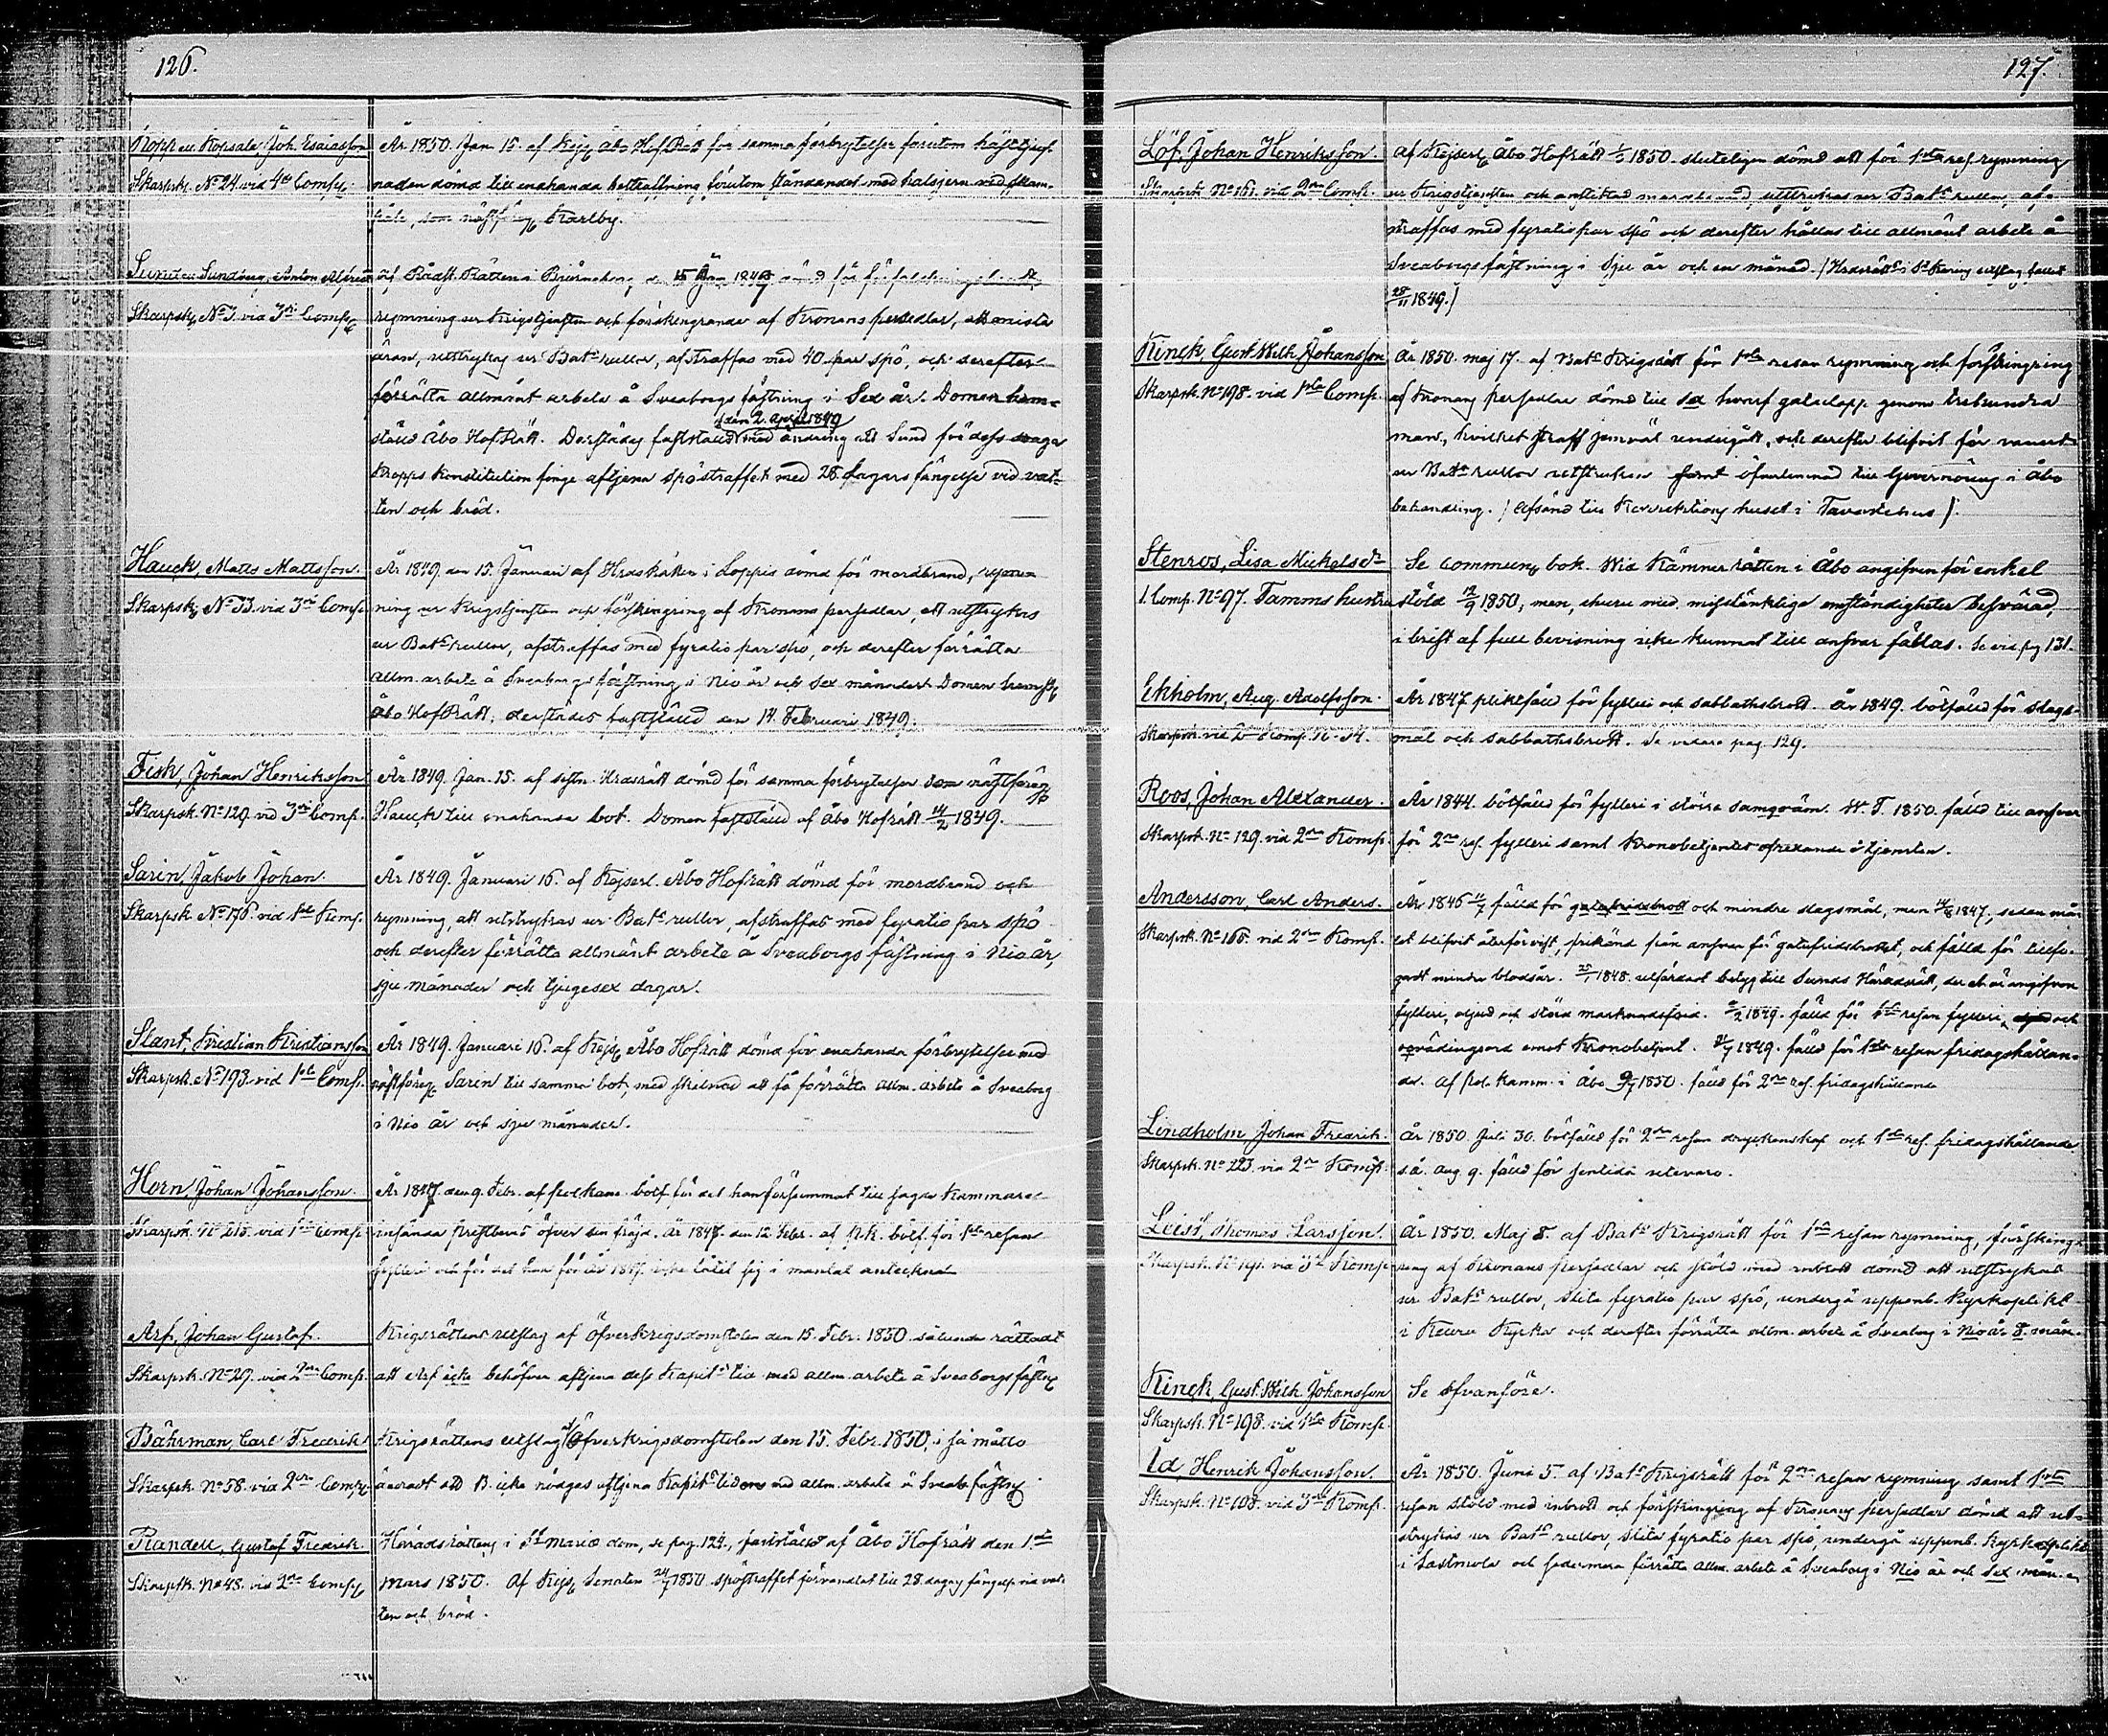 126.
Kopp ell. Kopsala, Joh. Esaiasson
Skarpsk. No 24. vid 4de Comp.
År 1850. Jan. 15. af Kejs. Åbo Hof Rätt för samma förbrytelser förutom
naden dömd till enahanda bestraffning förutom ståndandet med halsjern vid skam-
påle, som nästföreg. Karlby.
Sund ell. Sundberg, Anton Alfred
Skarpsk. No 3. vid 3die Comp.
Af Rådst. Rätten i Björneborg d. 15 Jan 1849 dömd för
rymning ur Krigstjensten och förskingrande af Kronans persedlar, att mista
äran, utstrykas ur Bats rullor, afstraffas med 40 par spö, och derefter
förrätta allmänt arbete å Sveaborgs fästning i Sex år. Domen hem-
ställd Åbo Hof Rätt. Derstädes fastställd den 2 April 1849 med ändring att Sund för dess svaga
kropps konstitution finge aftjena spöstraffet med 28 dagars fängelse vid vat-
ten och bröd.
Hauck, Matts Mattsson.
Skarpsk. No 33. vid 3die Comp.
År 1849 den 15. Januari af Hdsrätten i Loppis dömd för mordbrand, rym-
ning ur Krigstjensten och förskingring af Kronans persedlar, att utstrykas
ur Bats rullor, afstraffas med fyratio par spö, och derefter förrätta
allm. arbete å Sveaborgs fästning i Nio år och sex månader. Domen hemst.
Åbo Hof Rätt, derstädes fastställd den 14. Februari 1849.
Fisk, Johan Henriksson
Skarpsk. No 129 vid 3die Comp.
År 1849. Jan. 15. af Hdsrätt dömd för samma förbrytelser som nästföreg.
Hauck till enahanda bot. Domen fastställd af Åbo Hofrätt 14/2 1849.
Sarin, Jakob Johan.
Skarpsk. No 176. vid 1sta Komp.
År 1849. Januari 16. af Kejserl. Åbo Hofrätt dömd för mordbrand och
rymning, att utstrykas ur Bats rullor, afstraffas med fyratio par spö
och derefter förrätta allmänt arbete å Sveaborgs fästning i Nio år,
sju månader och tjugesex dagar.
Slant, Kristian Kristiansson
Skarpsk. No 193. vid 1sta Comp.
År 1849. Januari 16. af Kejs. Åbo Hofrätt dömd för enahanda förbrytelse med
nästföreg. Sarin till samma bot, med skelnad att få förrätta allm. arbete å Sveaborg
i Nio år och sju månader.
Horn, Johan Johansson.
Skarpsk. No 215. vid 1sta Comp.
År 1847. den 9. Febr. af pol. kam. bötf. för det han försummat till sagde Kammare
insända prestbevis öfver sin frejd. År 1848. den 12 Febr. af p.k. bötf. för 1sta resan
fylleri och för det han för år 1847. icke låtit sig i mantal anteckna.
Arf, Johan Gustaf.
Skarpsk. No 29. vid 2dra Comp.
Krigsrättens utslag af Öfverkrigsdomstolen den 15. Febr. 1850 sålunda rättadt
att Arf icke behöfver aftjena dess Kapit. tid med allm. arbete å Sveaborgs fästn.
Båhrman, Carl Fredrik
Skarpsk. No 58. vid 2dra Comp.
Krigsrättens utslag af Öfverkrigsdomstolen den 15. Febr. 1850, i så måtto
ändradt att B. icke nödgas aftjena Kapit. tiden med allm. arbete å Sveab. fästn.
Randell, Gustaf Fredrik.
Skarpsk. No 48. vid 2dra Comp.
Häradsrättens i St Mariæ dom, se pag. 124., fastställd af Åbo Hofrätt den 1sta
Mars 1850. Af Kejs. Senaten 24/7 1850 spöstraffet förvandlat till 28 dagars fängelse vid vat-
ten och bröd.
127.
Löf, Johan Henriksson.
Skarpsk. No 161. vid 2dra Comp.
Af Kejserl. Åbo Hofrätt 1850. sluteligen dömd att för 1sta res. rymning
ur Krigstjensten och anstiktad mordbrand, utstrykas ur Bats rullor, af-
straffas med fyratio par spö och derefter hållas till allmänt arbete å
Sveaborgs fästning i Sju år och en månad. (Hdsrätts i utslag fallet
28/11 1849.)
Kinck, Gust. Wilh. Johansson
Skarpsk. No 198. vid 1sta Comp.
År 1850. maj 17. af Bats Krigsrätt för 1sta resan rymning och förskingring
af Kronans persedlar dömd till sex hvarf gatulopp genom trehundra
man, hvilket straff jemväl undergått, och derefter blifvit för vanart
ur Bats rullor utstruken samt öfverlemnad till Guvernörens i Åbo
behandling. (Afsänd till Korrektions huset i Tavastehus).
Stenros, Lisa Mickelsdr
1. Comp. No 97. Tamms hustru
Se communions bok. Wid Kämnersrätten i Åbo angifven för enkel
stöld 12/9 1850; men, ehuru med misstänkliga omständigheter besvärad,
i brist af full bevisning icke kunnat till ansvar fällas. Se vid. pag 131.
Ekholm, Aug. Adolfsson.
Skarpsk. vid 2dra Comp. No 34.
År 1847 pliktfälld för fylleri och sabbathsbrott. År 1849. bötfälld för slags-
mål och sabbathsbrott. Se vidare pag. 129.
Roos, Johan Alexander.
Skarpsk. No 129. vid 2dra Komp.
År 1844. bötfälld för fylleri i större samqväm. W. T. 1850. fälld till ansvar
för 2dra res. fylleri samt Kronobetjentes ofredande i tjensten.
Andersson, Carl Anders.
Skarpsk. No 166. vid 2dra Komp.
År 1846 11/7 fälld för gatufridsbrott och mindre slagsmål, men 14/8 1847, sedan må-
let blifvit återförvist, frikänd från ansvar för gatufridsbrottet, och fälld för tillfo-
gadt mindre blodsår. 1848. utfärdadt betyg till Sunds Häradsrätt, der ch. är angifven
fylleri, oljud och störd marknadsfrid. 1849. fälld för 1sta resan fylleri, och
ovädingsord emot Kronobetjent. 1849. fälld för 1sta resan fridagshållan-
de. Af pol. kamm. i Åbo 9/7 1850. fälld för 2dra res. fridagshållande
Lindholm, Johan Fredrik.
Skarpsk. No 223. vid 2dra Komp.
År 1850. Juli 30. bötfälld för 2dra resan dryckenskap och 1sta res. fridagshållande
s.å. Aug 9. fälld för sentida utevaro.
Leist, Thomas Larsson.
Skarpsk. No 191. vid 3die Komp.
År 1850. Maj 8. af Bats Krigsrätt för 1sta resan rymning, försking-
ring af Kronans persedlar och stöld med inbrott dömd att utstrykas
ur Bats rullor, slita fyratio par spö, undergå uppenb. Kyrkoplikt
i Keuru Kyrka och derefter förrätta allm. arbete å Sveaborg i Nio år 8. mån.
Kinck, Gust. Wilh. Johansson
Skarpsk. No 198. vid 1sta Komp.
Se ofvanföre.
Id, Henrik Johansson.
Skarpsk. No 108. vid 3die Komp.
År 1850. Juni 5. af Bats Krigsrätt för 2dra resan rymning samt 1sta
resan stöld med inbrott och förskingring af Kronans persedlar dömd att ut-
strykas ur Bats rullor, slita fyratio par spö, undergå uppenb. kyrkoplikt
i Sastmola och sedermera förrätta allm. arbete å Sveaborg i Nio år och Sex mån.